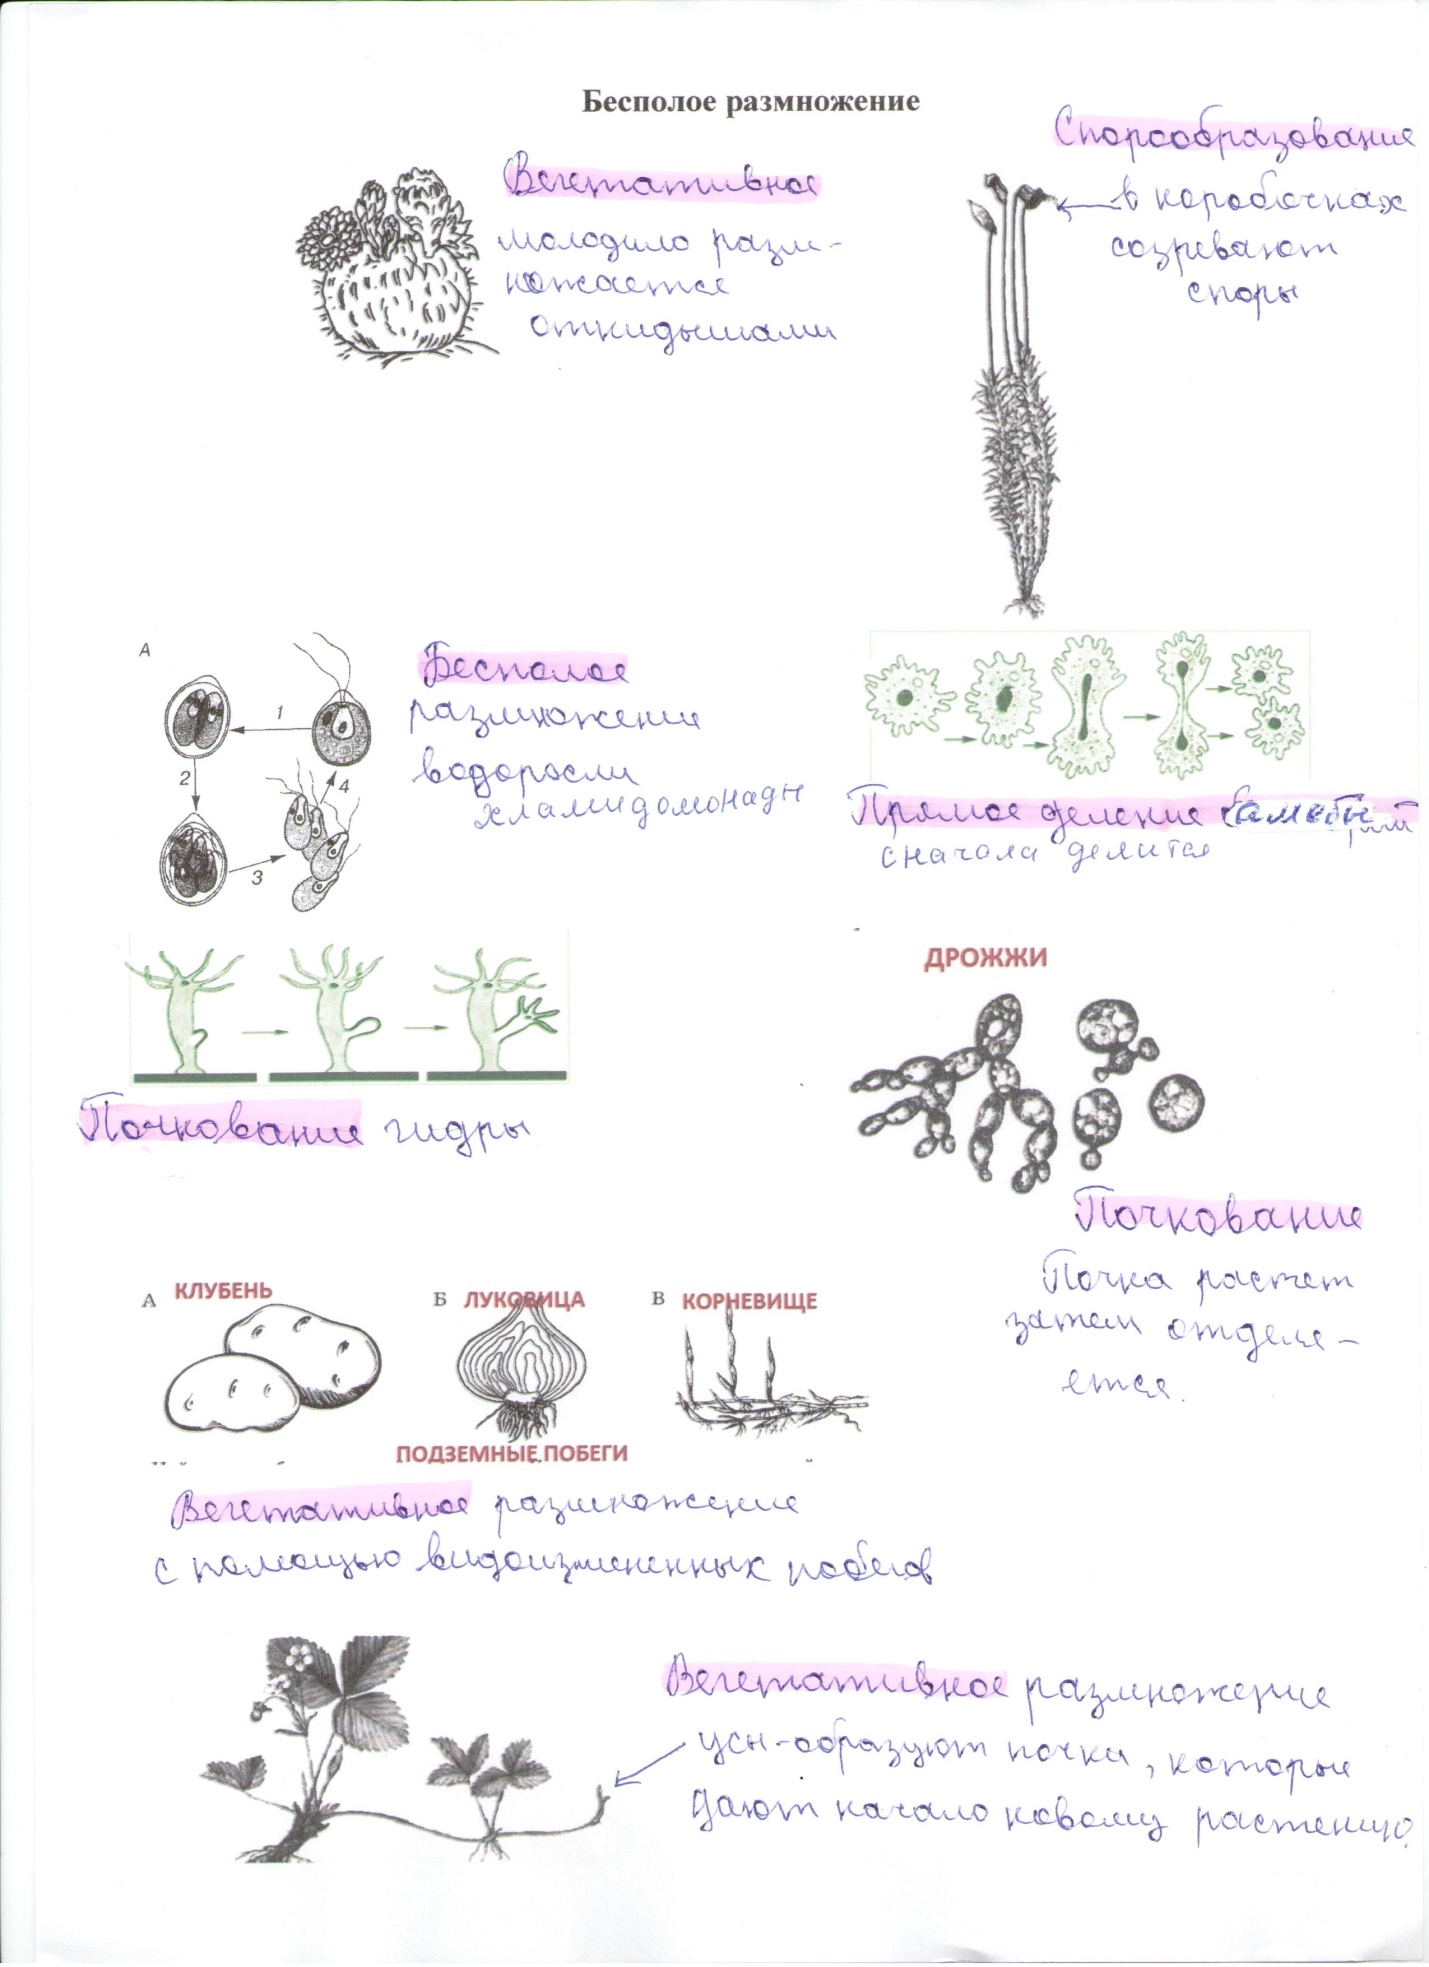 Бесполое размножение
Вегетативное
молодило разм-
ножается
откидышами
Спорообразование
в коробочках
созревают
споры
А
1
2
3
4
Бесполое
размножение
водоросли
хламидомонады
Прямое деление амебы
сначала делится
Почкование гидры
ДРОЖЖИ
Почкование
Почка растет
затем отделя-
ется.
А КЛУБЕНЬ
Б ЛУКОВИЦА
В КОРНЕВИЩЕ
ПОДЗЕМНЫЕ ПОБЕГИ
Вегетативное размножение
с помощью видоизмененных побегов
Вегетативное размножение
усы-образуют почки, которые
дают начало новому растению.